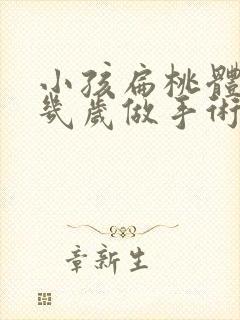 小孩扁桃體
幾歲做手術
章新生